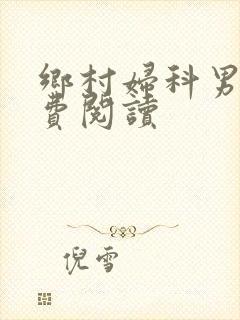 鄉村婦科男
費閱讀
倪雪